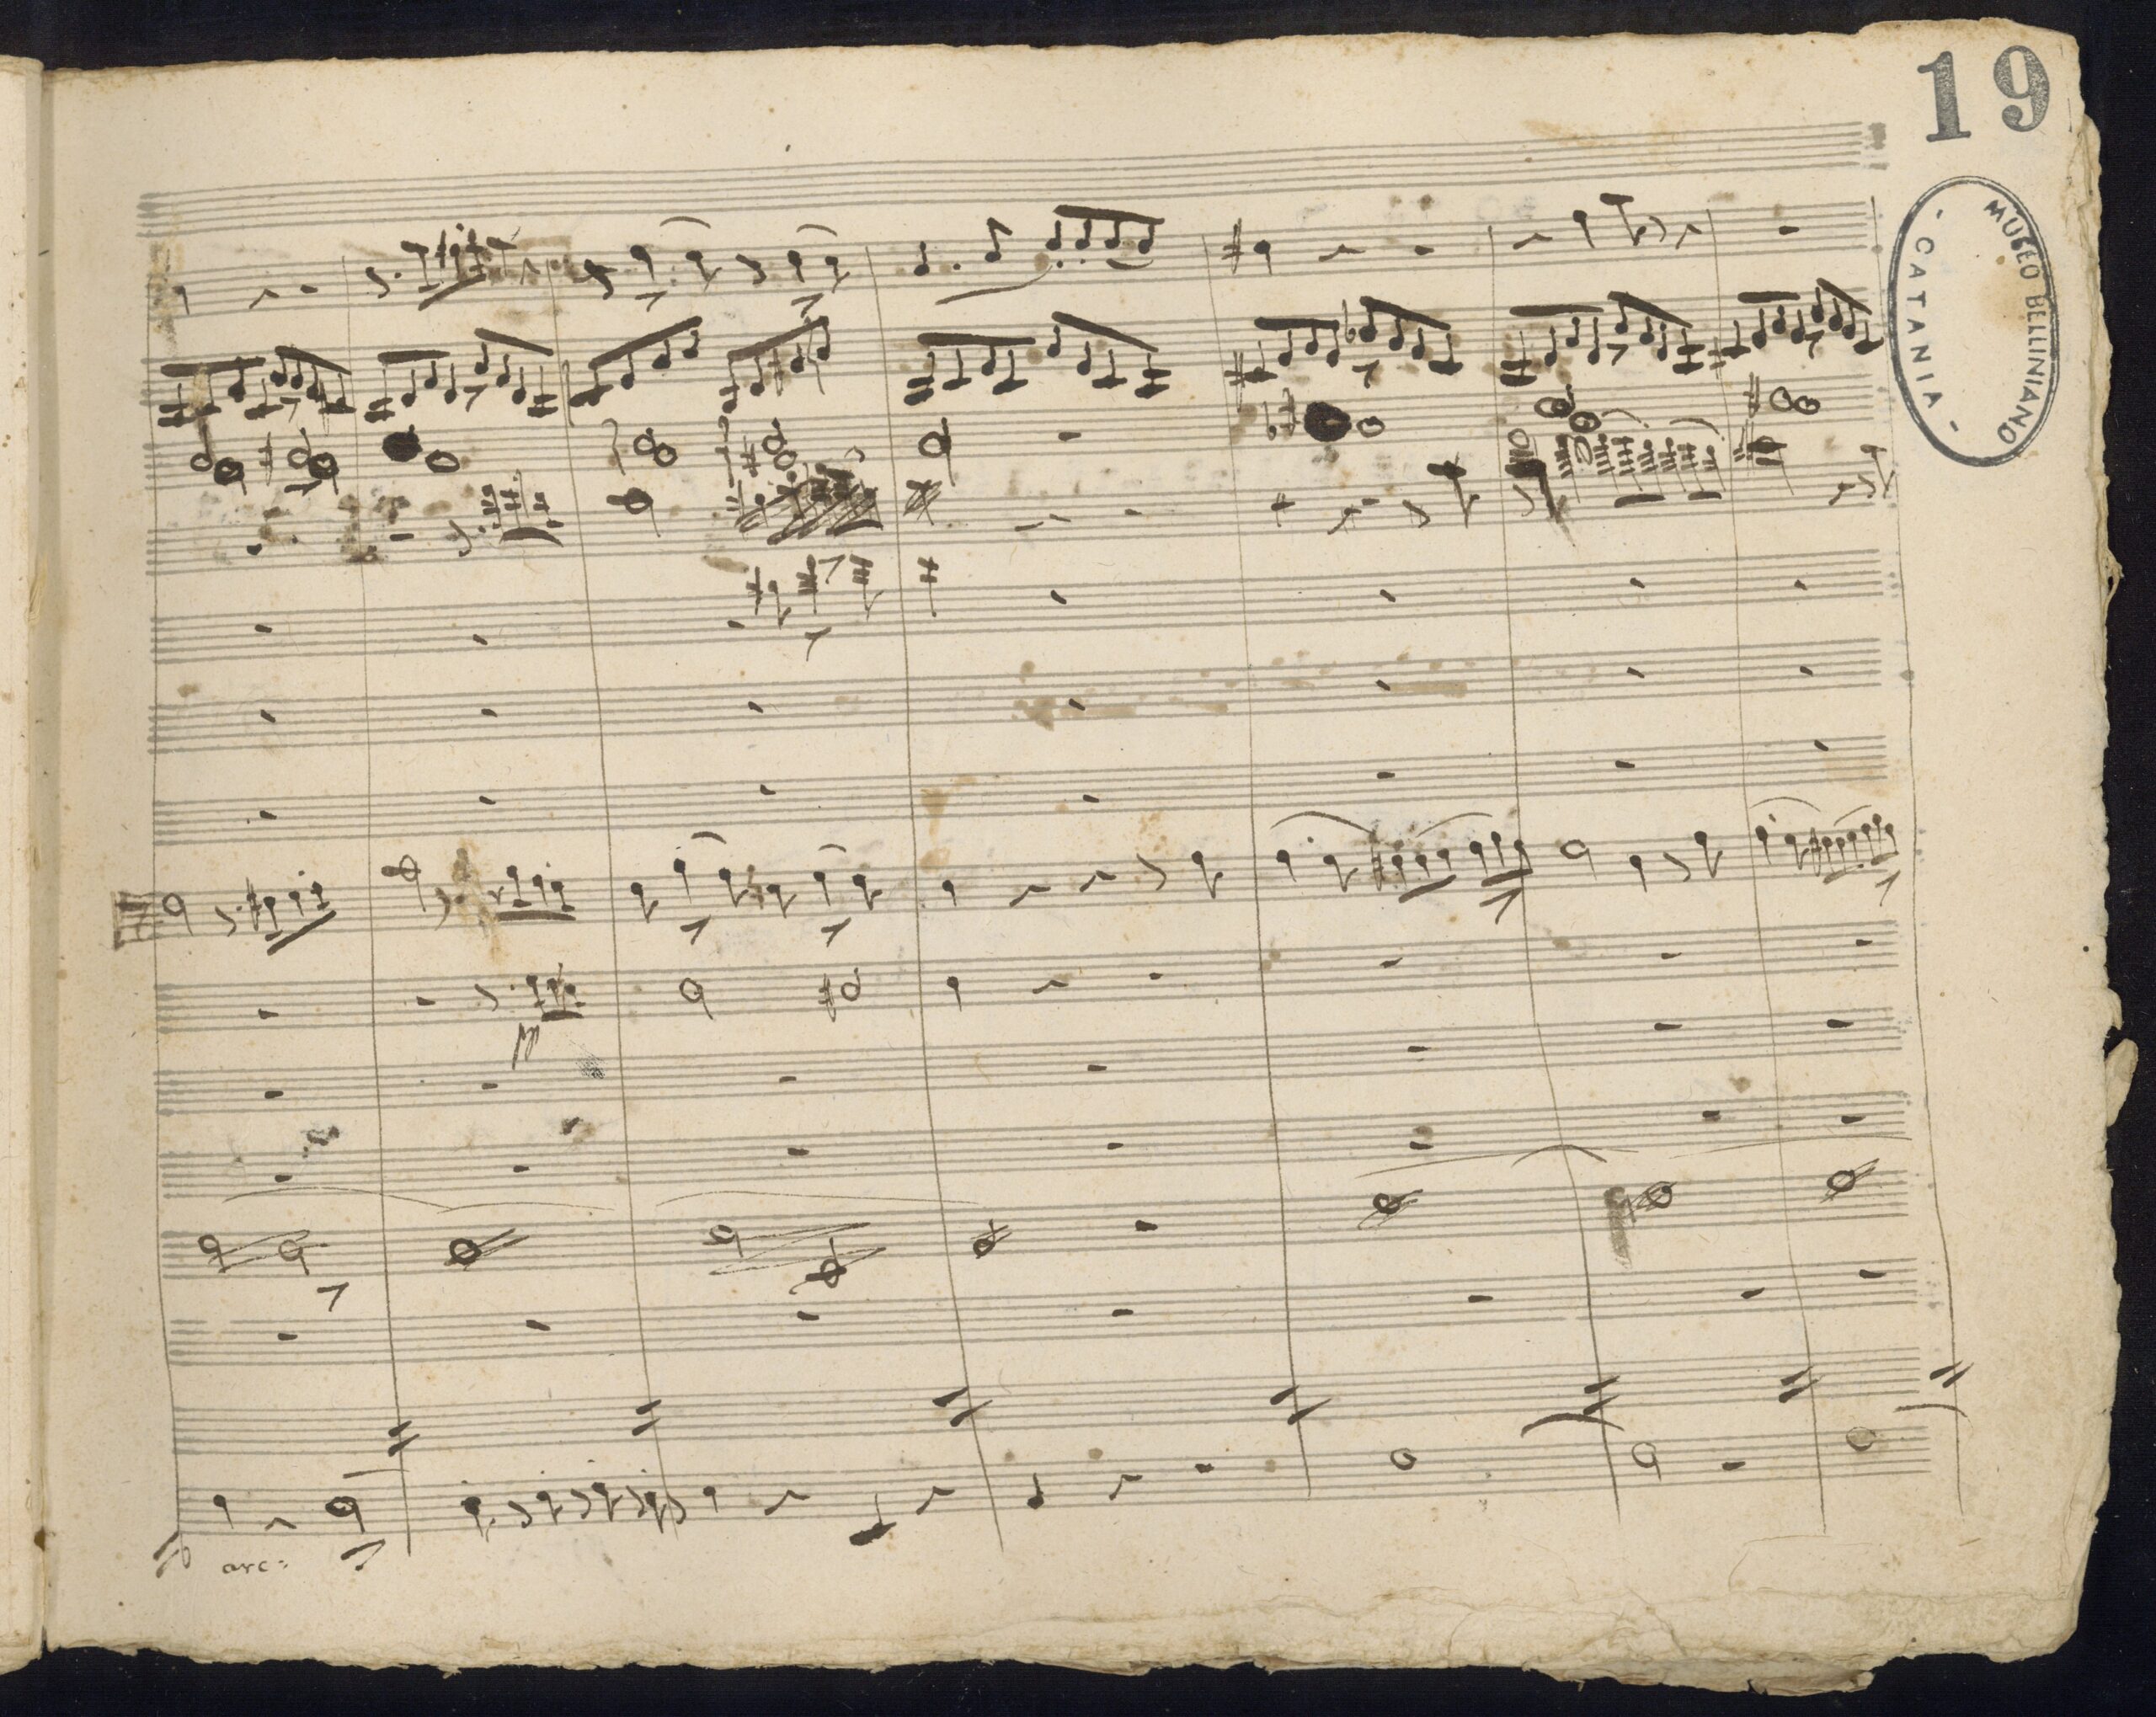 19
MUSEO BELLINIANO
- CATANIA -
arc: